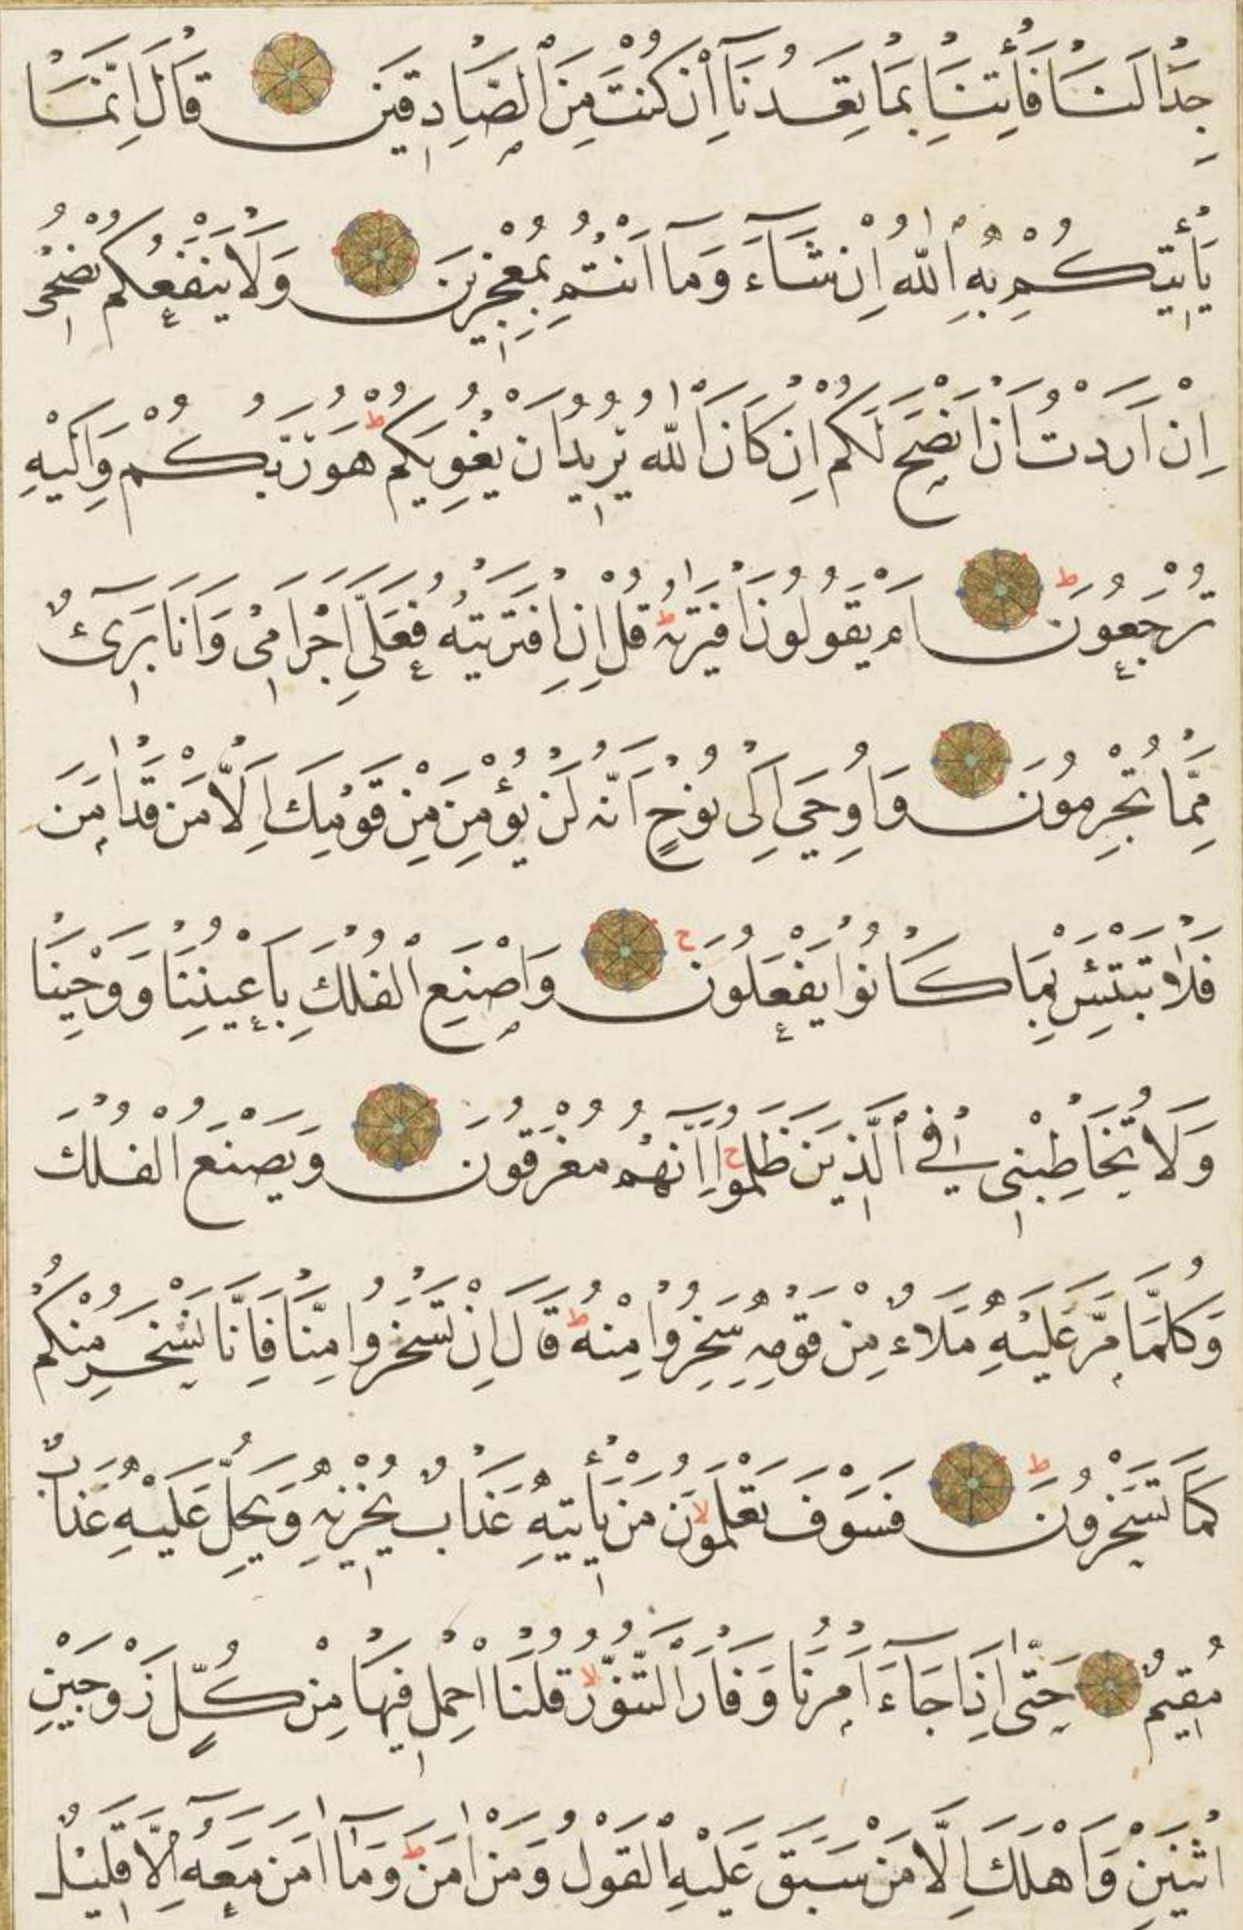 جِدَالَنَا فَأْتِنَا بِمَا تَعِدُنَآ اِنْ كُنْتَ مِنَ الصَّادِقِينَ قَالَ اِنَّمَا
يَأْتِيكُمْ بِهِ اللّٰهُ اِنْ شَآءَ وَمَآ اَنْتُمْ بِمُعْجِزِينَ وَلَا يَنْفَعُكُمْ نُصْحِى
اِنْ اَرَدْتُ اَنْ اَنْصَحَ لَكُمْ اِنْ كَانَ اللّٰهُ يُرِيدُ اَنْ يُغْوِيَكُمْ ط هُوَ رَبُّكُمْ وَاِلَيْهِ
تُرْجَعُونَ ط اَمْ يَقُولُونَ افْتَرٰيهُ ط قُلْ اِنِ افْتَرَيْتُهُ فَعَلَىَّ اِجْرَامِى وَاَنَا بَرِىٓءٌ
مِمَّا تُجْرِمُونَ وَاُوحِىَ اِلٰى نُوحٍ اَنَّهُ لَنْ يُؤْمِنَ مِنْ قَوْمِكَ اِلَّا مَنْ قَدْ اٰمَنَ
فَلَا تَبْتَئِسْ بِمَا كَانُوا يَفْعَلُونَ ح وَاصْنَعِ الْفُلْكَ بِاَعْيُنِنَا وَوَحْيِنَا
وَلَا تُخَاطِبْنِى فِى الَّذِينَ ظَلَمُوٓا ح اِنَّهُمْ مُغْرَقُونَ وَيَصْنَعُ الْفُلْكَ
وَكُلَّمَا مَرَّ عَلَيْهِ مَلَاءٌ مِنْ قَوْمِهِ سَخِرُوا مِنْهُ ط قَالَ اِنْ تَسْخَرُوا مِنَّا فَاِنَّا نَسْخَرُ مِنْكُمْ
كَمَا تَسْخَرُونَ ط فَسَوْفَ تَعْلَمُونَ لا مَنْ يَأْتِيهِ عَذَابٌ يُخْزِيهِ وَيَحِلُّ عَلَيْهِ عَذَابٌ
مُقِيمٌ حَتّٰىٓ اِذَا جَآءَ اَمْرُنَا وَفَارَ التَّنُّورُ لا قُلْنَا احْمِلْ فِيهَا مِنْ كُلٍّ زَوْجَيْنِ
اثْنَيْنِ وَاَهْلَكَ اِلَّا مَنْ سَبَقَ عَلَيْهِ الْقَوْلُ وَمَنْ اٰمَنَ ط وَمَآ اٰمَنَ مَعَهُٓ اِلَّا قَلِيلٌ